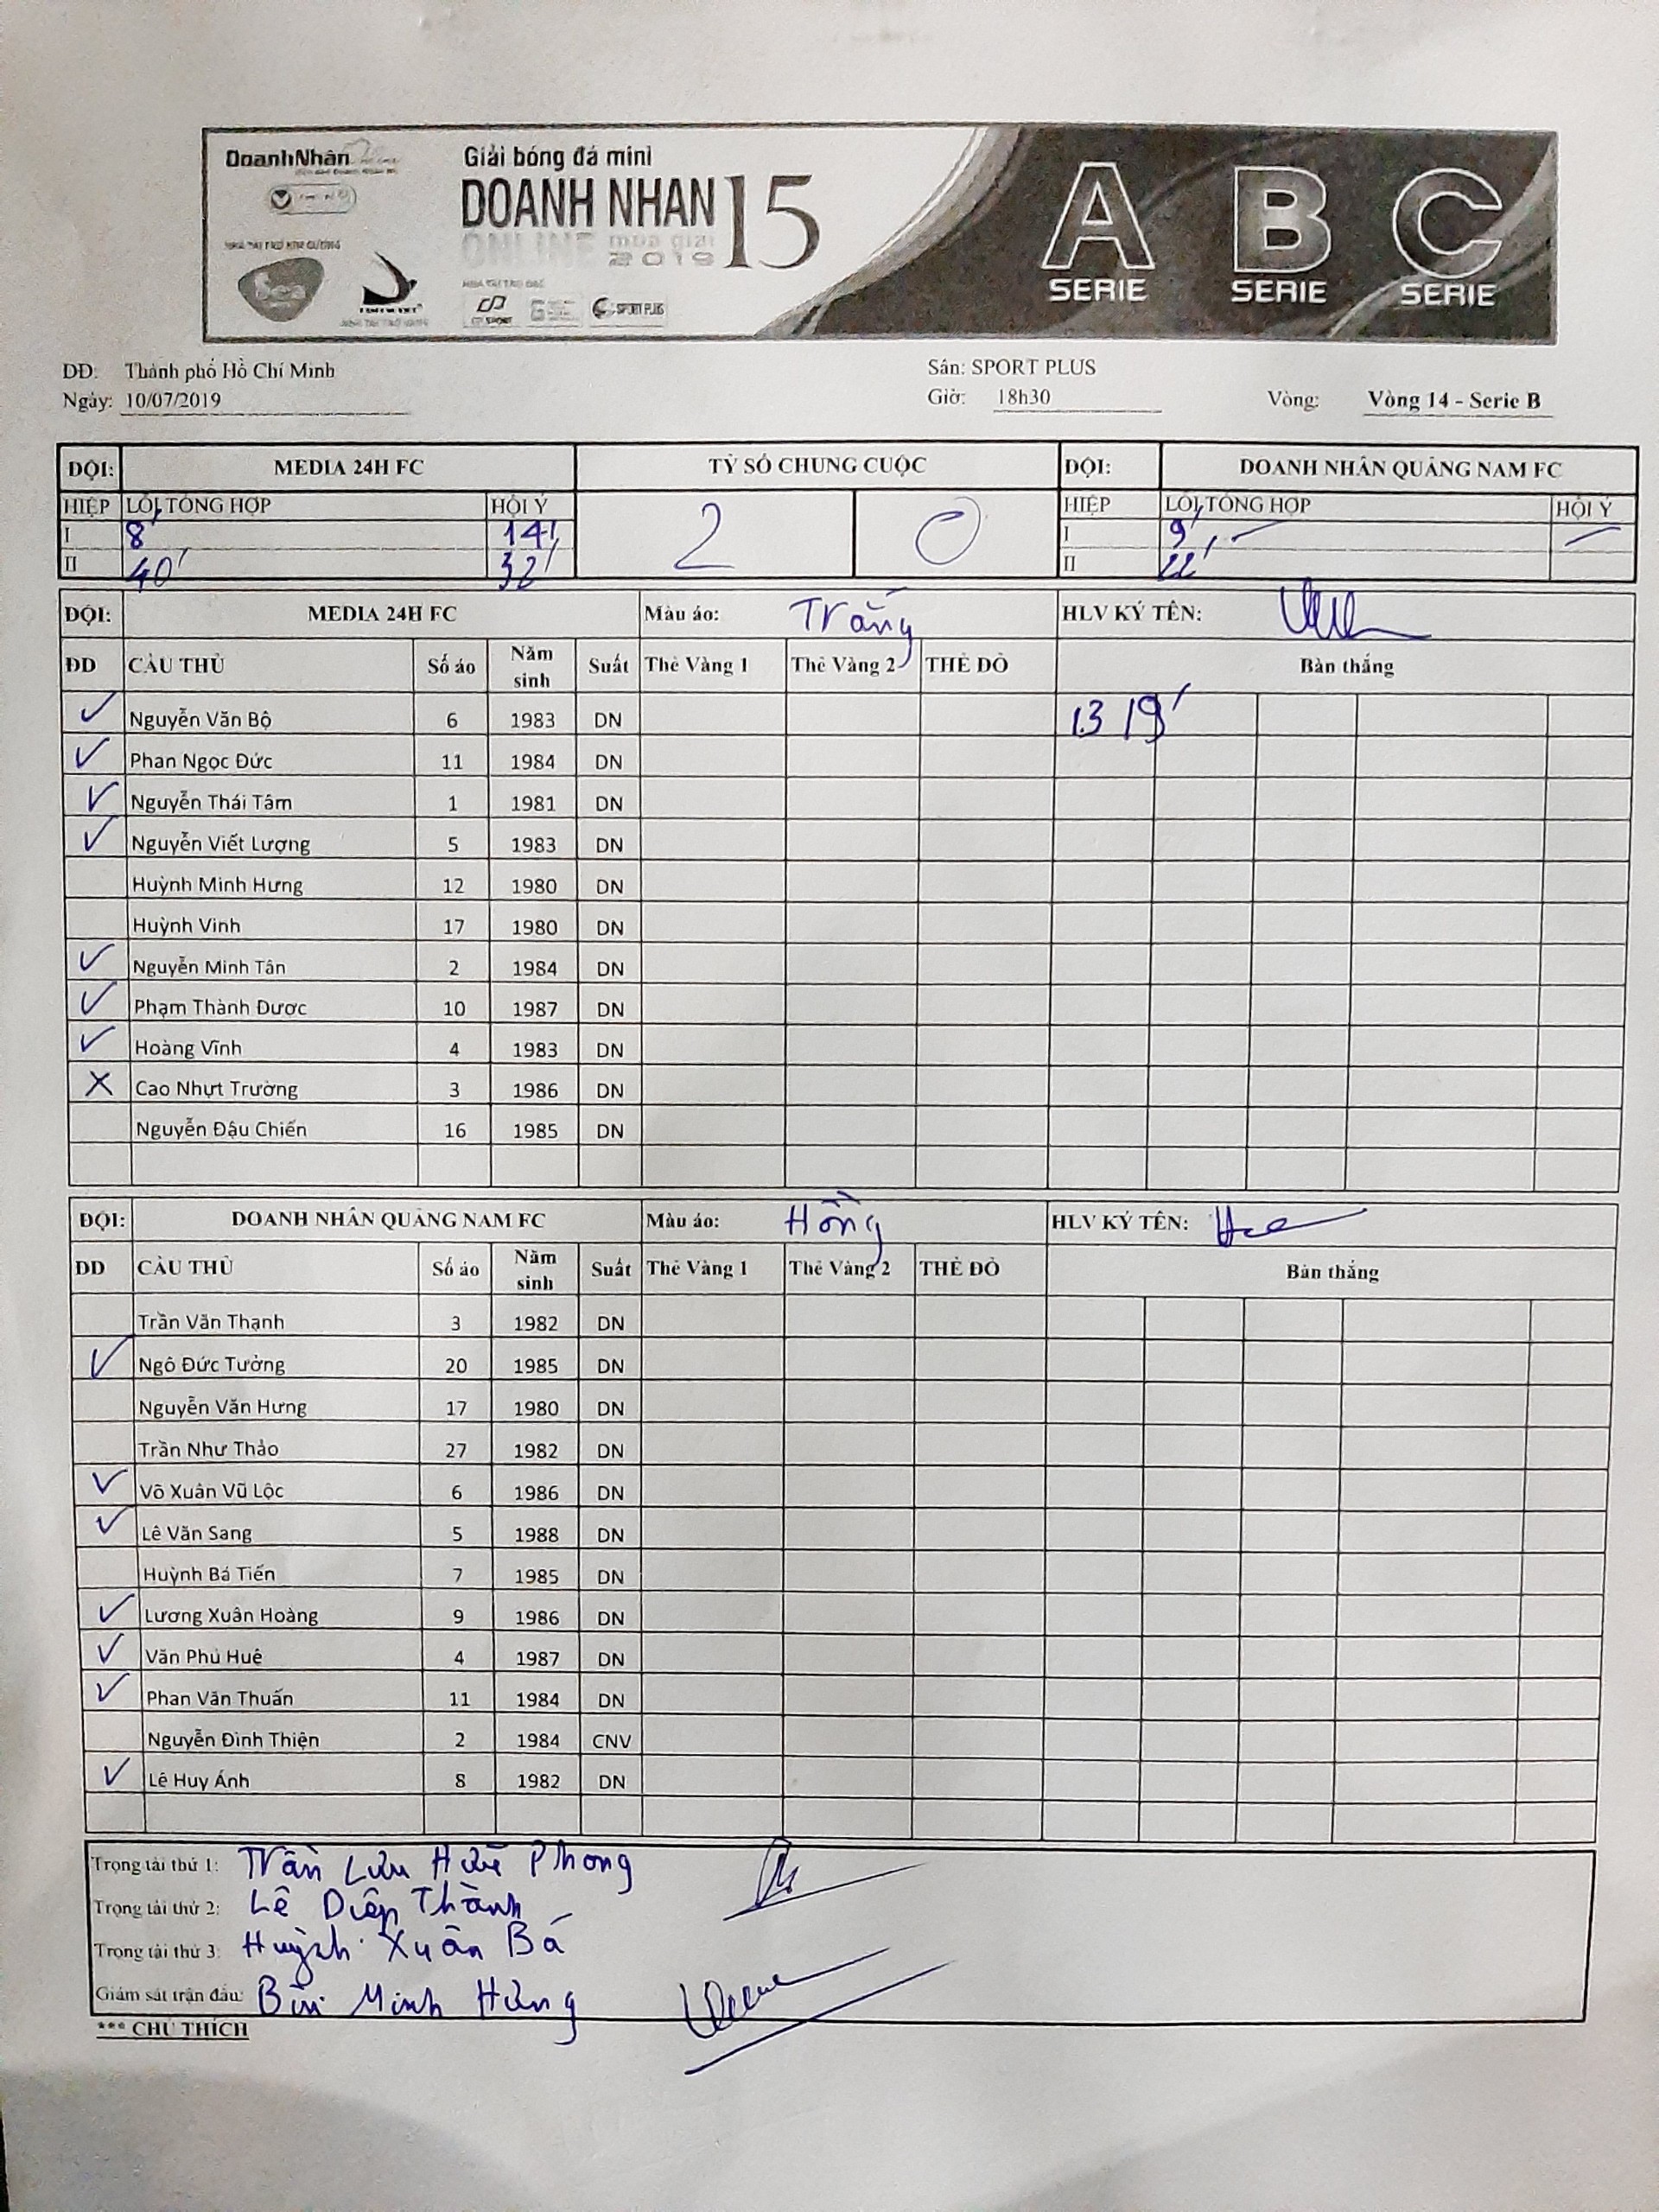 DoanhNhân
Giải bóng đá mini
DOANH NHAN 15
ONLINE mùa giải 2019
NHÀ TÀI TRỢ KIM CƯƠNG
Sea
SPORT PLUS
A SERIE B SERIE C SERIE
DĐ: Thành phố Hồ Chí Minh Sân: SPORT PLUS
Ngày: 10/07/2019 Giờ: 18h30 Vòng: Vòng 14 - Serie B
ĐỘI: MEDIA 24H FC TỶ SỐ CHUNG CUỘC ĐỘI: DOANH NHÂN QUẢNG NAM FC
HIỆP LỖI TỔNG HỢP HỘI Ý 2 0 HIỆP LỖI TỔNG HỢP HỘI Ý
I 8' 14' I 9' –
II 40' 32' II 22'
ĐỘI: MEDIA 24H FC Màu áo: Trắng HLV KÝ TÊN:
ĐD CẦU THỦ Số áo Năm sinh Suất Thẻ Vàng 1 Thẻ Vàng 2 THẺ ĐỎ Bàn thắng
✓ Nguyễn Văn Bộ 6 1983 DN 13 19'
✓ Phan Ngọc Đức 11 1984 DN
✓ Nguyễn Thái Tâm 1 1981 DN
✓ Nguyễn Viết Lượng 5 1983 DN
Huỳnh Minh Hưng 12 1980 DN
Huỳnh Vinh 17 1980 DN
✓ Nguyễn Minh Tân 2 1984 DN
✓ Phạm Thành Được 10 1987 DN
✓ Hoàng Vĩnh 4 1983 DN
X Cao Nhựt Trường 3 1986 DN
Nguyễn Đậu Chiến 16 1985 DN
ĐỘI: DOANH NHÂN QUẢNG NAM FC Màu áo: Hồng HLV KÝ TÊN:
ĐD CẦU THỦ Số áo Năm sinh Suất Thẻ Vàng 1 Thẻ Vàng 2 THẺ ĐỎ Bàn thắng
Trần Văn Thạnh 3 1982 DN
✓ Ngô Đức Tường 20 1985 DN
Nguyễn Văn Hưng 17 1980 DN
Trần Như Thảo 27 1982 DN
✓ Võ Xuân Vũ Lộc 6 1986 DN
✓ Lê Văn Sang 5 1988 DN
Huỳnh Bá Tiến 7 1985 DN
✓ Lương Xuân Hoàng 9 1986 DN
✓ Văn Phú Huệ 4 1987 DN
✓ Phan Văn Thuấn 11 1984 DN
Nguyễn Đình Thiện 2 1984 CNV
✓ Lê Huy Ánh 8 1982 DN
Trọng tài thứ 1: Trần Lưu Hữu Phong
Trọng tài thứ 2: Lê Diệp Thành
Trọng tài thứ 3: Huỳnh Xuân Bá
Giám sát trận đấu: Bùi Minh Hùng
*** CHÚ THÍCH